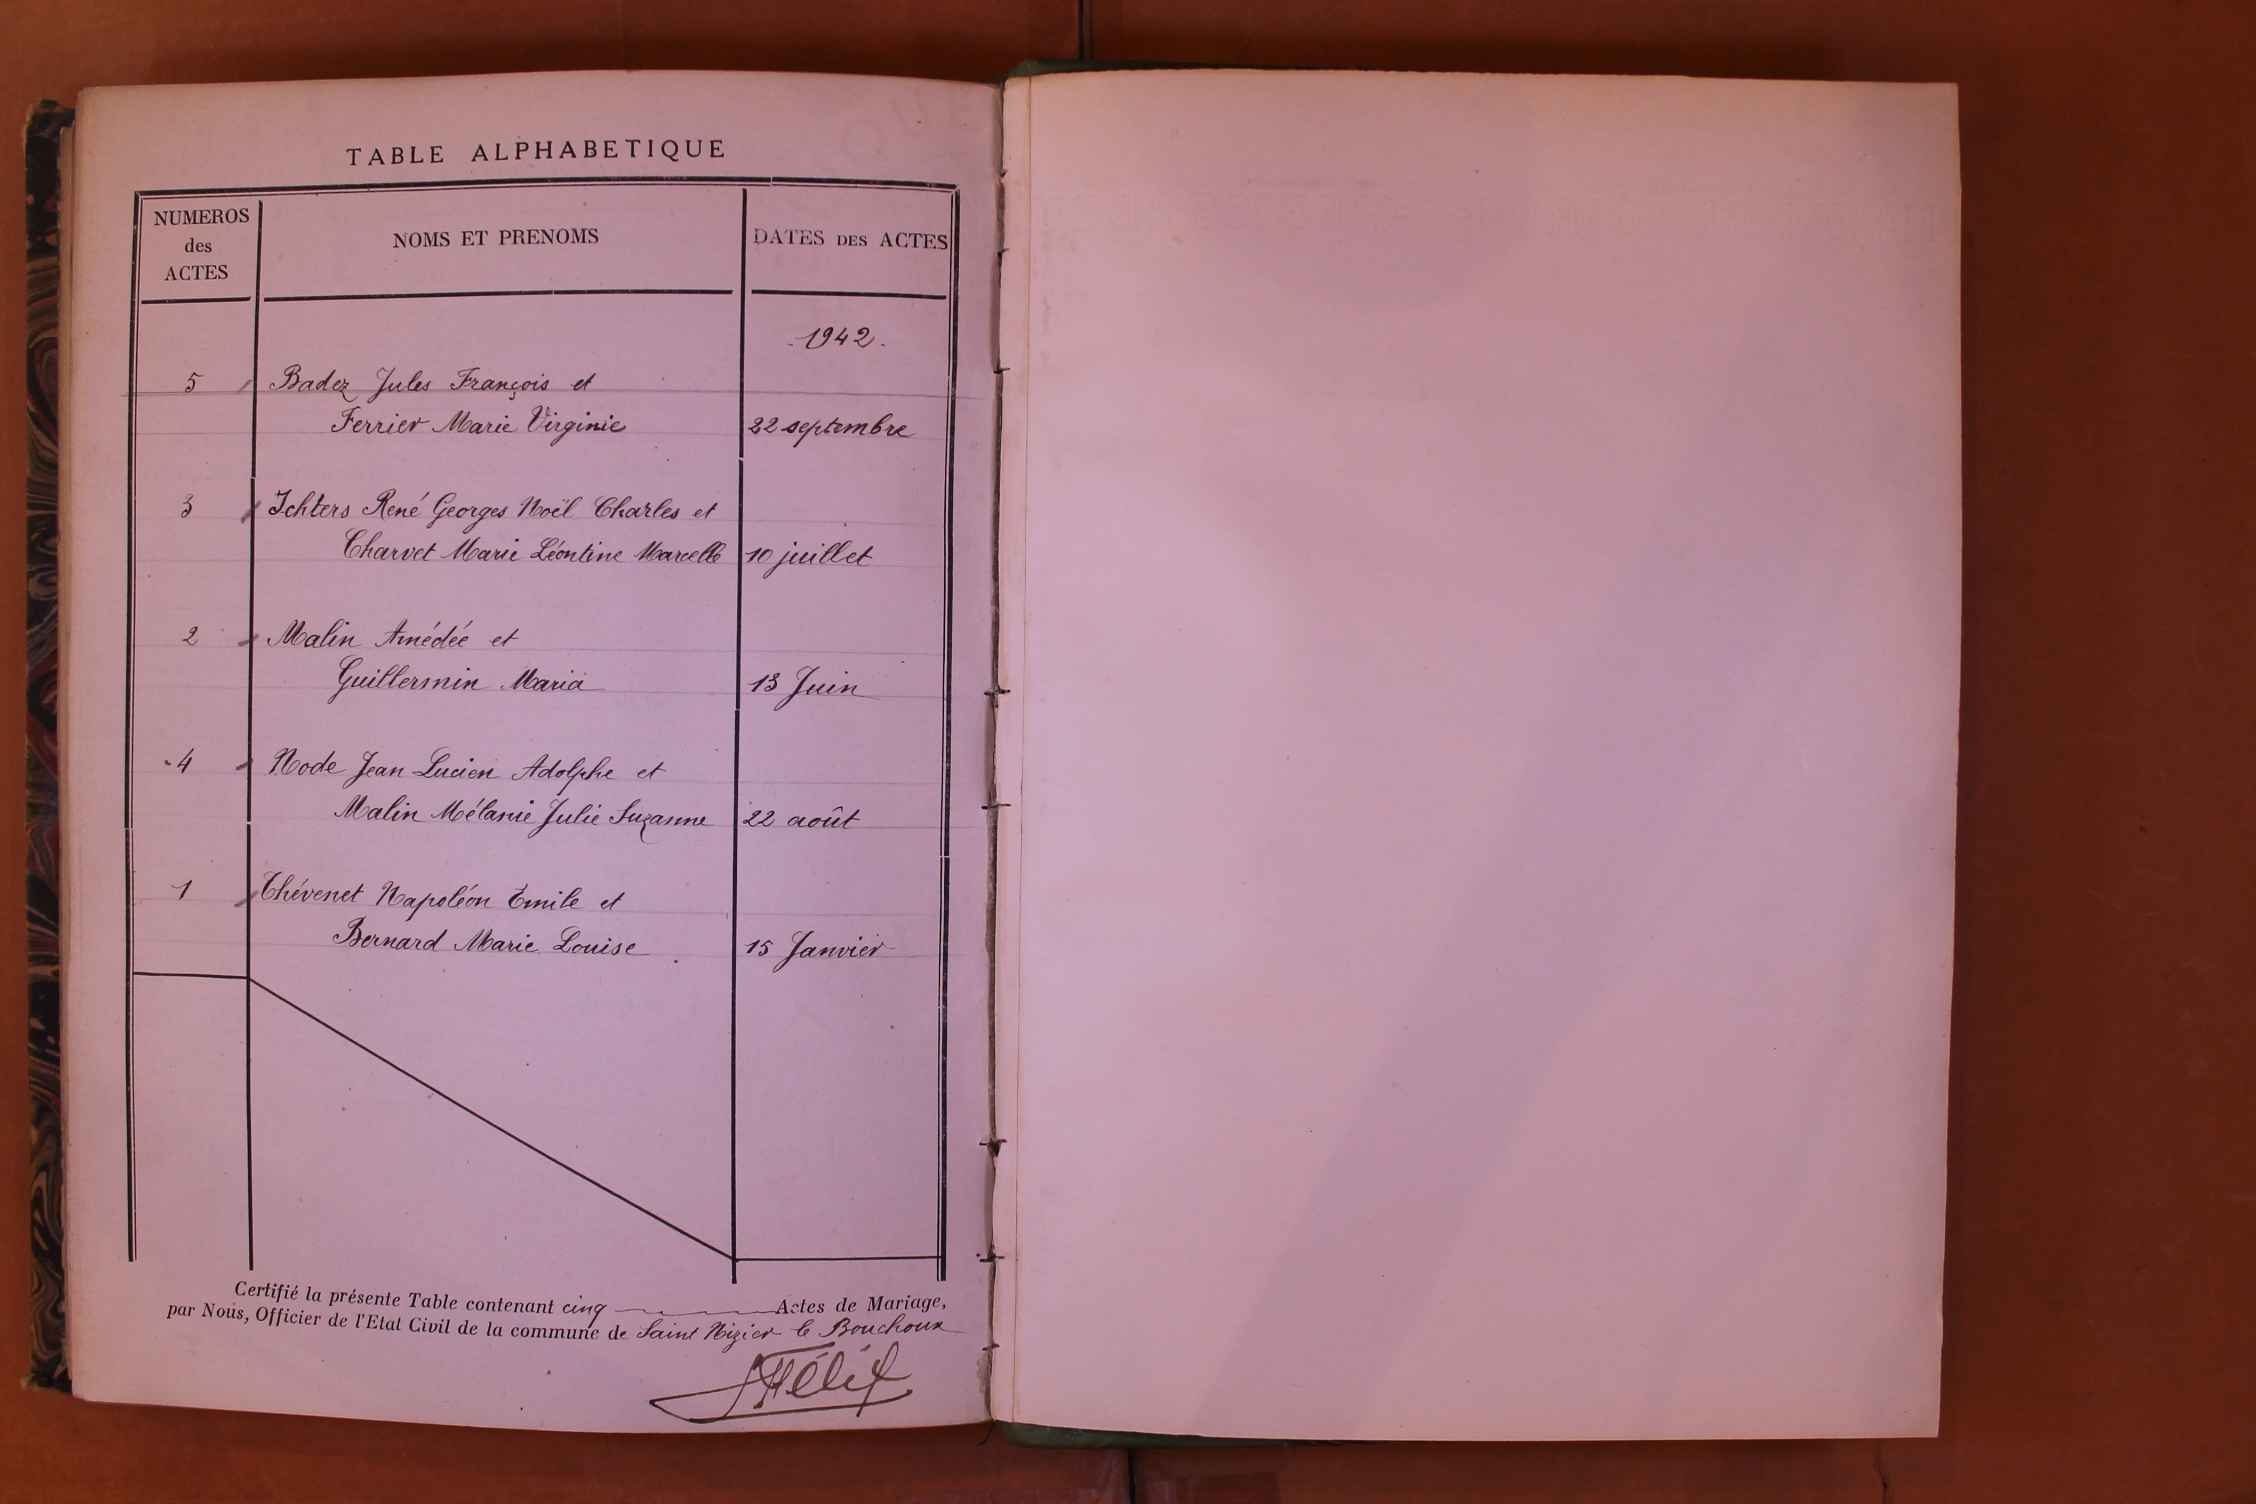 TABLE ALPHABETIQUE
NUMEROS des ACTES
NOMS ET PRENOMS
DATES DES ACTES
1942.
5 Badez Jules François et
Ferrier Marie Virginie 22 septembre
3 Ichters René Georges Noël Charles et
Charvet Marie Léontine Marcelle 10 juillet
2 Malin Amédée et
Guillermin Maria 13 Juin
4 Node Jean Lucien Adolphe et
Malin Mélanie Julie Suzanne 22 août
1 Thévenet Napoléon Émile et
Bernard Marie Louise 15 Janvier
Certifié la présente Table contenant cinq Actes de Mariage,
par Nous, Officier de l'Etat Civil de la commune de Saint Nizier le Bouchoux